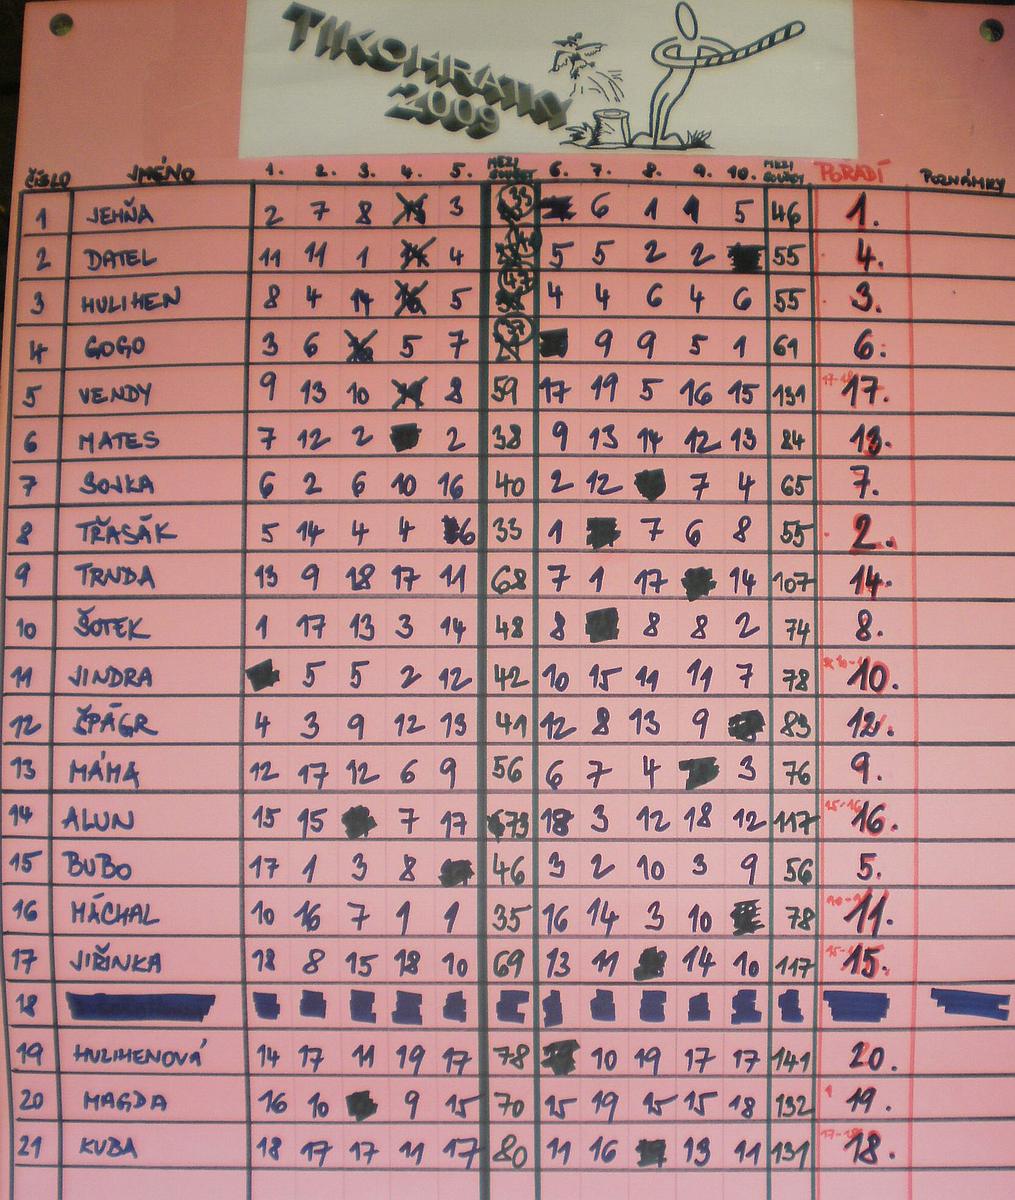 TIKOHRÁTKY
2009
ČÍSLO JMÉNO 1. 2. 3. 4. 5. MEZI SOUČTY 6. 7. 8. 9. 10. MEZI SOUČTY POŘADÍ POZNÁMKY
1 JEHŇA 2 7 8 3 33 6 1 1 5 46 1.
2 DATEL 11 11 1 4 5 5 2 2 55 4.
3 HULIHEN 8 4 14 5 47 4 4 6 4 6 55 3.
4 GOGO 3 6 5 7 37 9 9 5 1 61 6.
5 VENDY 9 13 10 8 59 17 19 5 16 15 131 17.
6 MATES 7 12 2 2 38 9 13 14 12 13 84 13.
7 SOJKA 6 2 6 10 16 40 2 12 7 4 65 7.
8 TŘASÁK 5 14 4 4 6 33 1 7 6 8 55 2.
9 TRNDA 13 9 18 17 11 68 7 1 17 14 107 14.
10 ŠOTEK 1 17 13 3 14 48 8 8 8 2 74 8.
11 JINDRA 5 5 2 12 42 10 15 11 11 7 78 10.
12 ŠPÁGR 4 3 9 12 13 41 12 8 13 9 83 12.
13 MÁMA 12 17 12 6 9 56 6 7 4 3 76 9.
14 ALUN 15 15 7 17 73 18 3 12 18 12 117 15-16 16.
15 BUBO 17 1 3 8 46 3 2 10 3 9 56 5.
16 MÁCHAL 10 16 7 1 1 35 16 14 3 10 78 11.
17 JIŘINKA 18 8 15 18 10 69 13 11 14 10 117 15.
18
19 HULIHENOVÁ 14 17 11 19 17 78 10 19 17 17 141 20.
20 MAGDA 16 10 9 15 70 15 19 15 15 18 132 19.
21 KUBA 18 17 17 11 17 80 11 16 13 11 131 17-18 18.